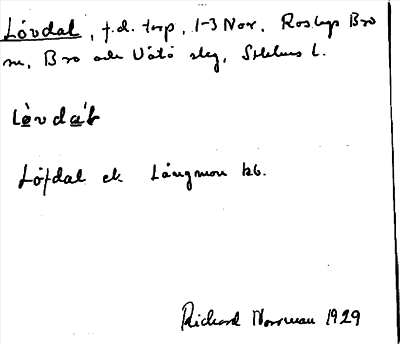 Lövdal, f.d. torp, 1-3 Nor, Roslags Bro
sn, Bro och Vätö slg, Sthlms L.
Lèvda`ḷ
Löfdal ek Långmon kb.
Richard Norrman 1929